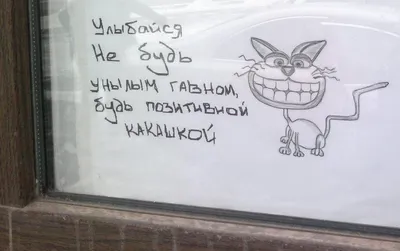 Улыбайся
Не будь
унылым гавном,
будь позитивной
какашкой